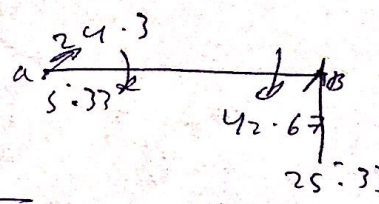 24.3
a B
5.33
42.67
25.33